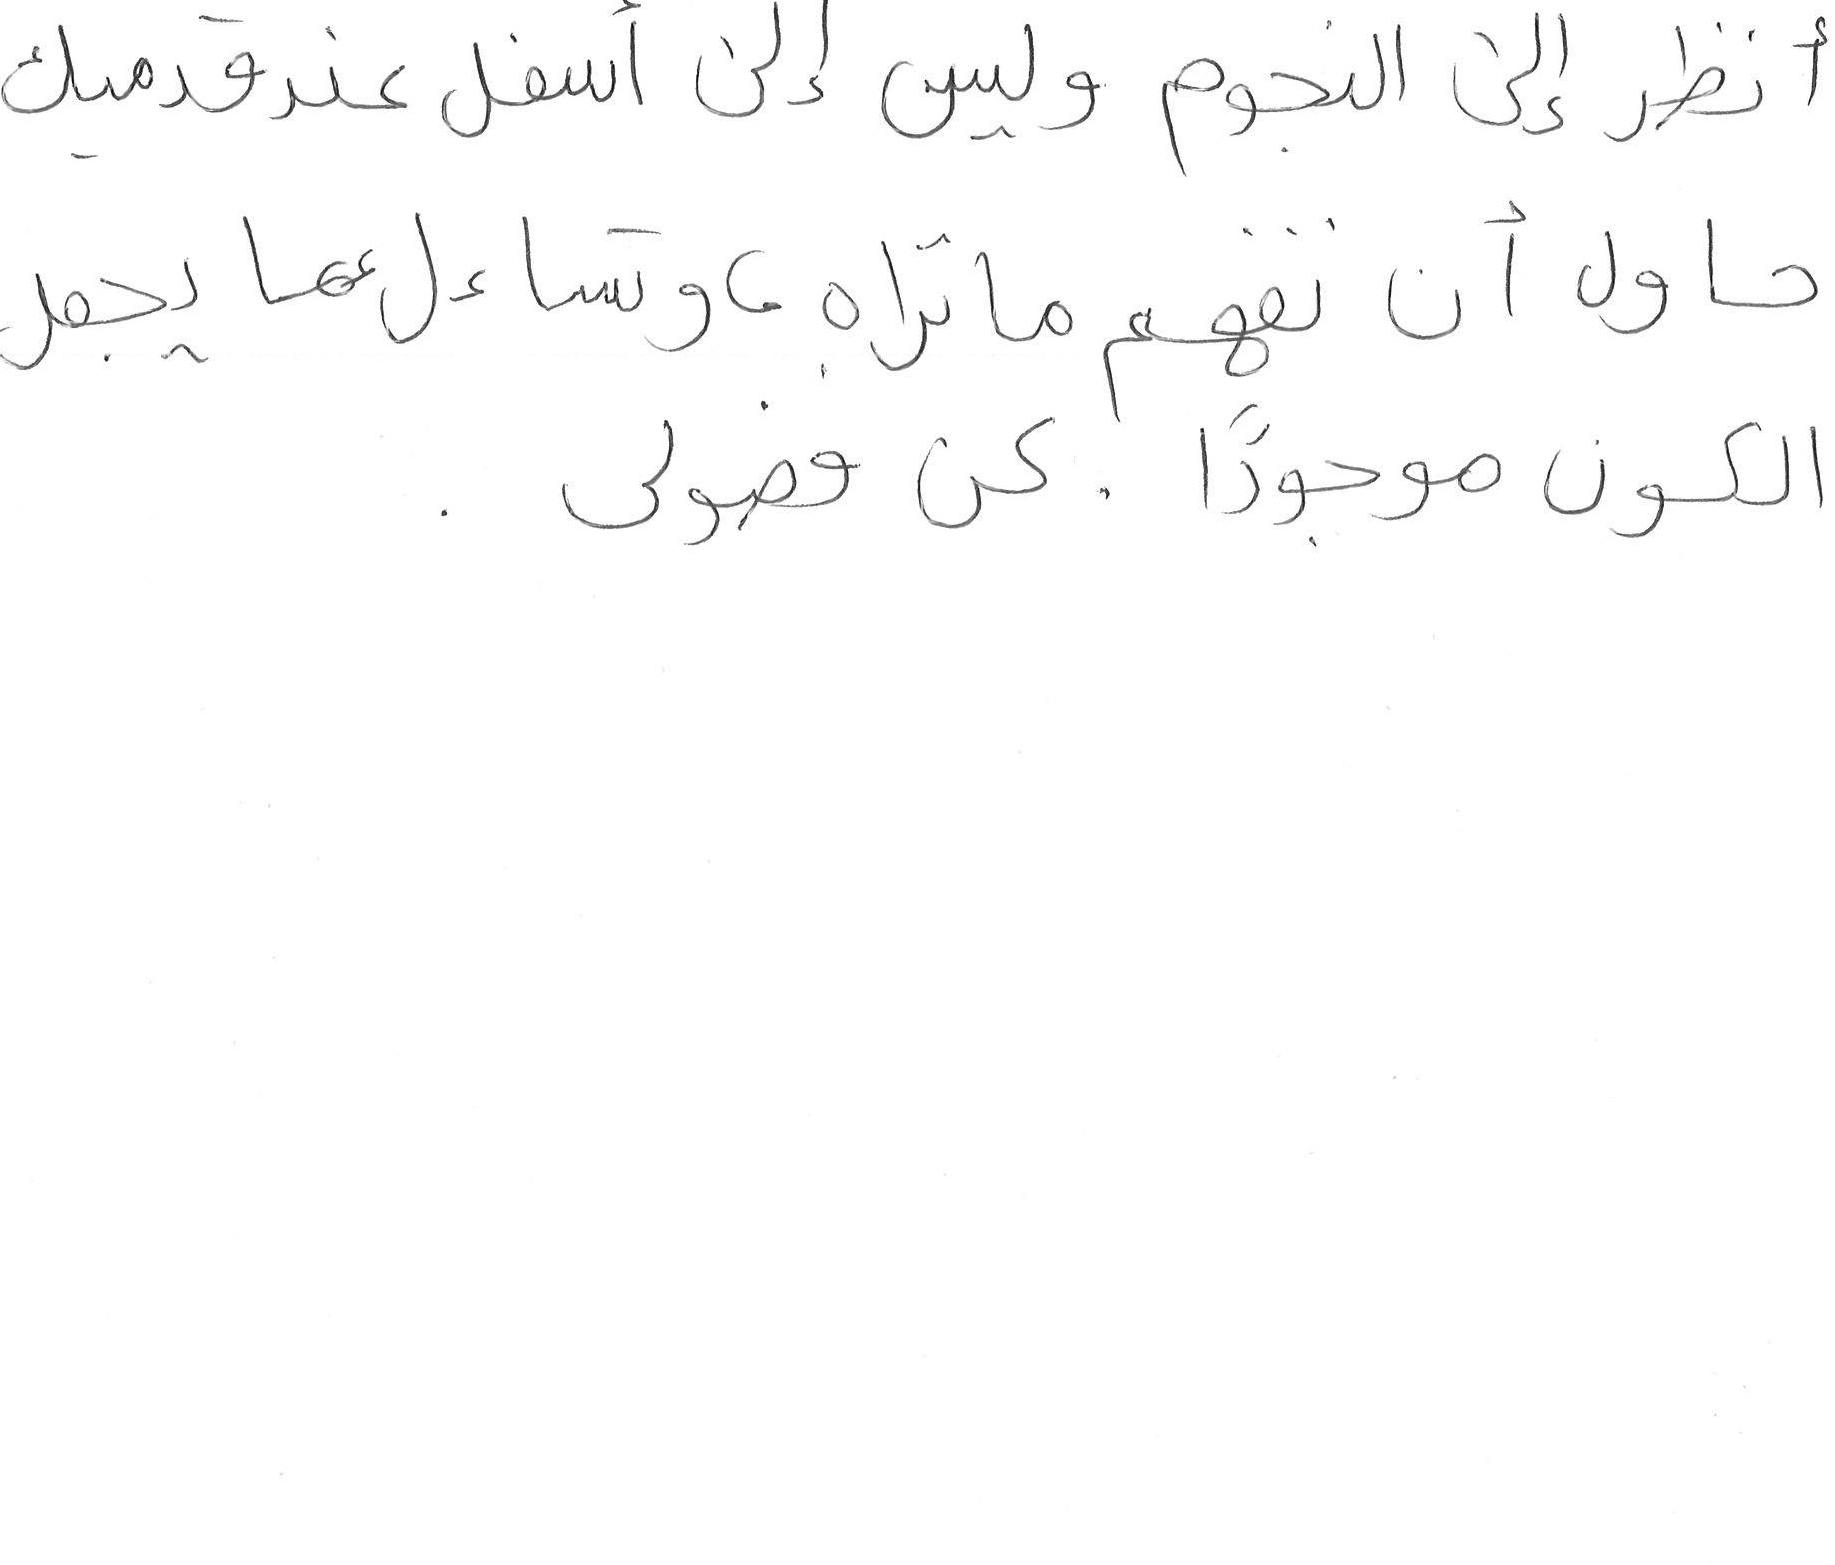 أنظر إلى النجوم وليس إلى أسفل عند قدميك
حاول أن تفهم ما تراه ، وتساءل عما يجعل
الكون موجودًا . كن فضولى .